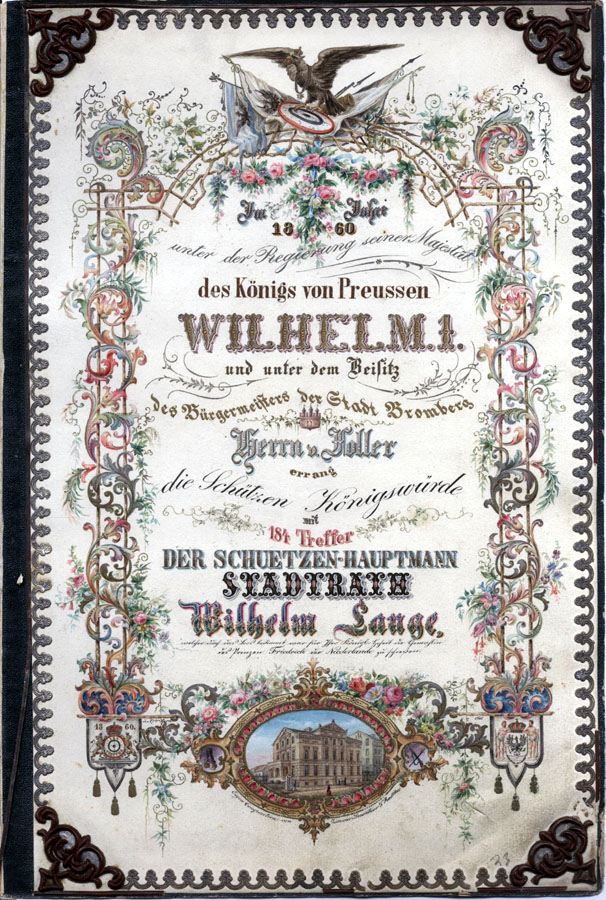 Im Jahre
1860
unter der Regierung seiner Majestät
des Königs von Preussen
WILHELM.1.
und unter dem Beisitz
des Bürgermeisters der Stadt Bromberg
Herrn v. Foller
errang
die Schützen Königswürde
mit
184 Treffer
DER SCHUETZEN-HAUPTMANN
STADTRATH
Wilhelm Lange,
welcher auf das Loos bekannt war für Ihre Königl. Hoheit die Gemahlin
des Prinzen Friedrich der Niederlande zu schiessen.
1860.
23